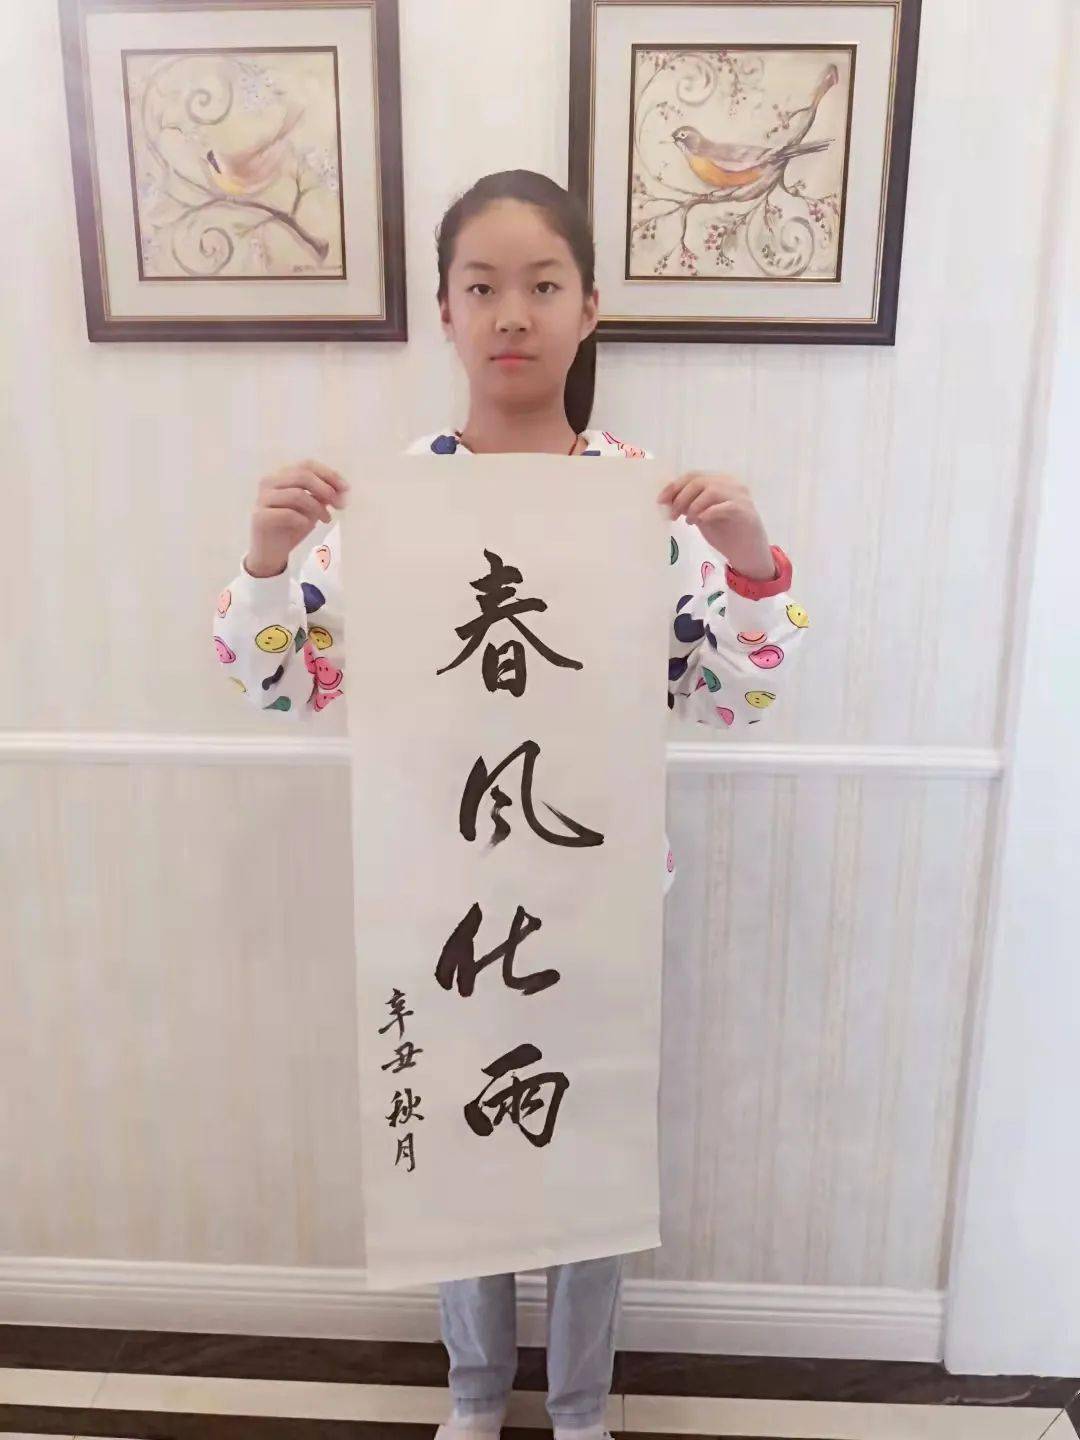 春风化雨
辛丑秋月